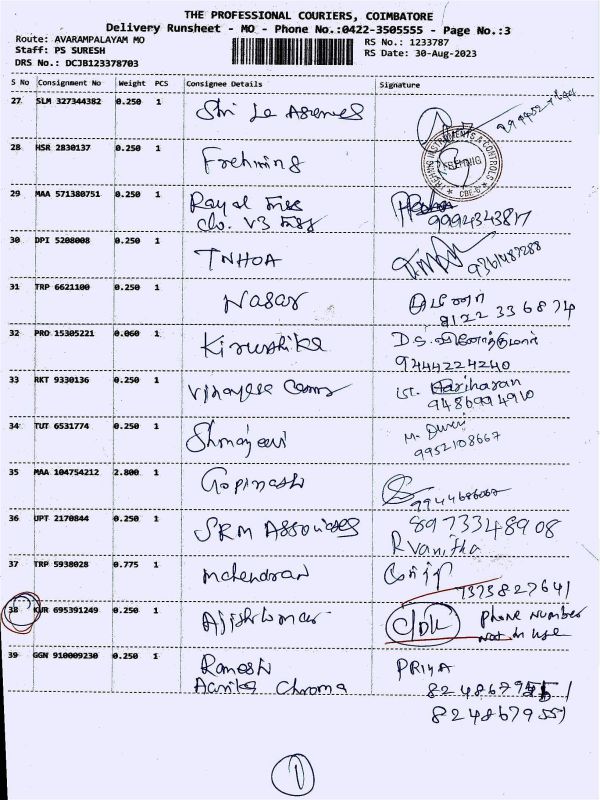 THE PROFESSIONAL COURIERS, COIMBATORE
Delivery Runsheet - MO - Phone No.:0422-3505555 - Page No.:3
Route: AVARAMPALAYAM MO
RS No.: 1233787
Staff: PS SURESH
RS Date: 30-Aug-2023
DRS No.: DCJB123378703
S No Consignment No Weight PCS Consignee Details Signature
27 SLM 327344382 0.250 1 Shri
28 HSR 2830137 0.250 1
TRISHNA INSTRUMENTS & CONTROLS
CBE-6
29 MAA 571380751 0.250 1 Royal
c/o. V3
9994343817
30 DPI 5208008 0.250 1 TNHOA 9361487288
31 TRP 6621100 0.250 1 Nasar
8122 336874
32 PRO 15305221 0.060 1 Kirushika D.S. வினோத்குமார்
9444224240
33 RKT 9330136 0.250 1 Hariharan
9486994910
34 TUT 6531774 0.250 1
9952108667
35 MAA 104754212 2.800 1 Gopinath
36 UPT 2170844 0.250 1 SRM Associates 8973348908
R Vanitha
37 TRP 5938028 0.775 1 Mahendran
7373827641
38 KUR 695391249 0.250 1 Ajishkumar Phone number
not in use
39 GGN 910009230 0.250 1 Ramesh PRIYA
Aarika Chroma
8248679557
1